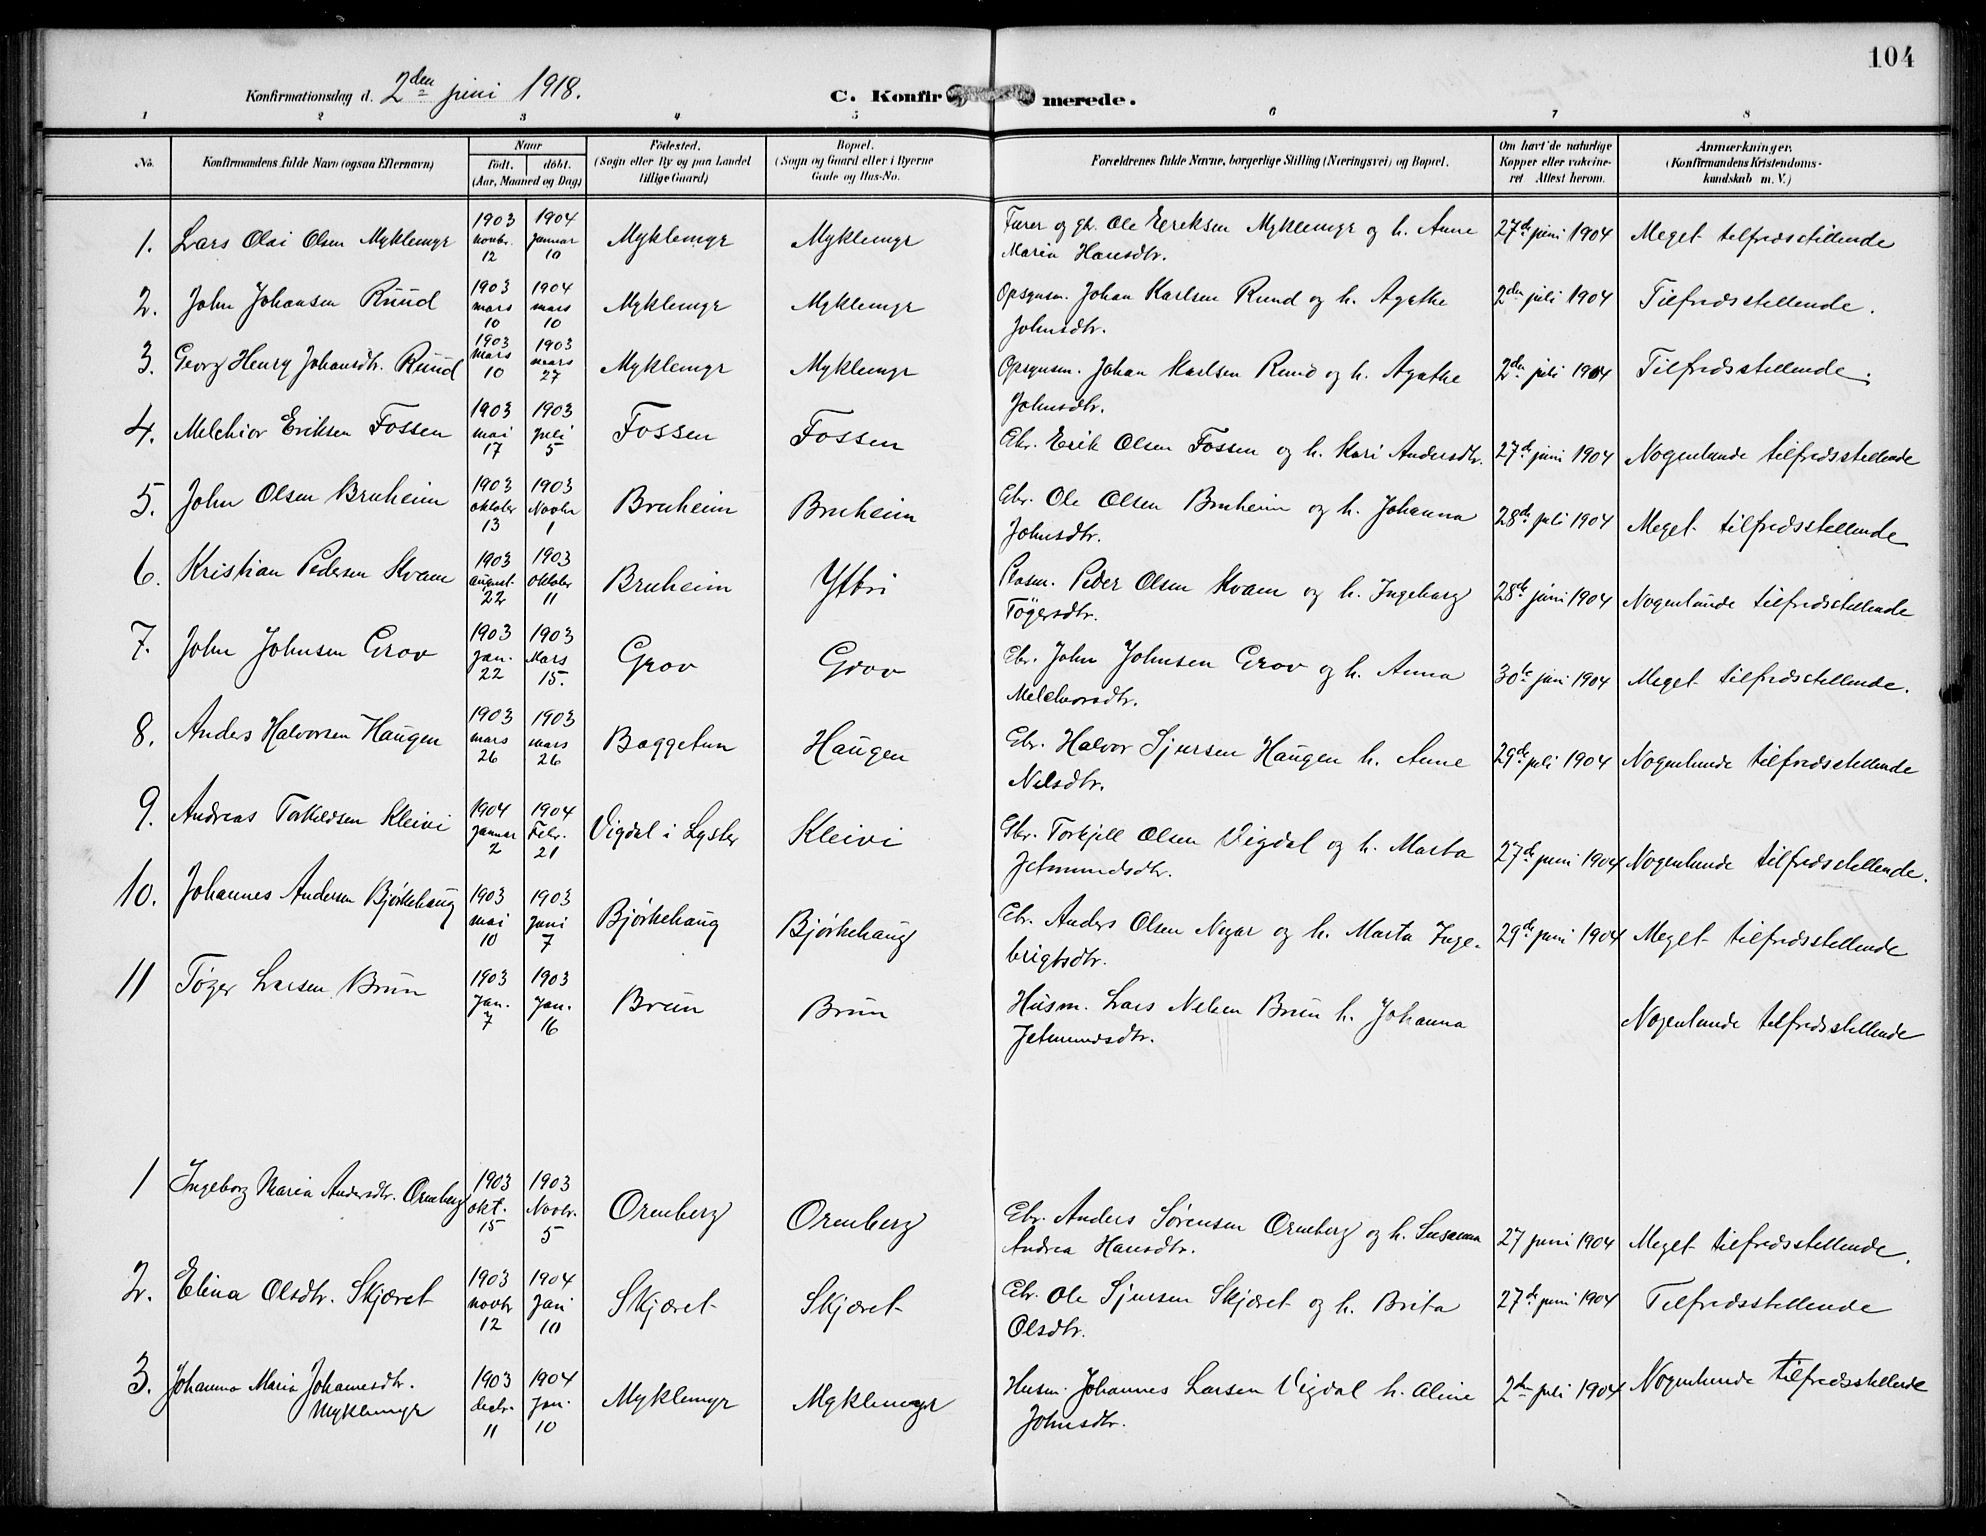 104
Konfirmationsdag d. 2den juni 1918. C. Konfirmerede.
1 2 3 4 5 6 7 8
No. Konfirmandens fulde Navn (ogsaa Efternavn) Naar födt. döbt. (Aar, Maaned og Dag) Födested. (Sogn eller By og paa Landet tillige Gaard) Bopæl. (Sogn og Gaard eller i Byerne Gade og Hus-No. Forældrenes fulde Navne, borgerlige Stilling (Næringsvei) og Bopæl. Om havt de naturlige Kopper eller vakcineret Attest herom. Anmærkninger. (Konfirmandens Kristendomskundskab m. V.)
1. Lars Olai Olsen Myklemyr 1903 novbr. 12 1904 Januar 10 Myklemyr Myklemyr Ole Eriksen Myklemyr og h. Anne Maria Hansdtr. 27de juni 1904 Meget tilfredsstillende
2. John Johansen Ruud 1903 mars 10 1904 mars 10 Myklemyr Myklemyr Opsynsm. Johan Karlsen Ruud og h. Agathe Johnsdtr. 2den juli 1904 Tilfredsstillende.
3. Georg Henry Johansdtr. Ruud 1903 Mars 10 1903 mars 27 Myklemyr Myklemyr Opsynsm. Johan Karlsen Ruud og h. Agathe Johnsdtr. 2den juli 1904 Tilfredsstillende.
4. Melchior Eriksen Fossen 1903 mai 17 1903 juli 5 Fossen Fossen Gbr. Erik Olsen Fossen og h. Kari Andersdtr. 27de juni 1904 Nogenlunde tilfredsstillende
5. John Olsen Bruheim 1903 oktober 13 1903 Novbr 1 Bruheim Bruheim Gbr. Ole Olsen Bruheim og h. Johanna Johnsdtr. 28de juli 1904 Meget tilfredsstillende
6. Kristian Pedersen Kvam 1903 august 22 1903 oktober 11 Bruheim Ytbri Plasm. Peder Olsen Kvam og h. Ingeborg Tögersdtr. 28de juni 1904 Nogenlunde tilfredsstillende
7. John Johnsen Grov 1903 Jan. 22 1903 Mars 15. Grov Grov Gbr. John Johnsen Grov og h. Anna Melchiorsdtr. 30te juni 1904 Meget tilfredsstillende.
8. Anders Halvorsen Haugen 1903 mars 26 1903 mars 26 Baggetun Haugen Gbr. Halvor Sjursen Haugen h. Anne Nilsdtr. 29de juli 1904 Nogenlunde tilfredsstillende
9. Andreas Torkildsen Kleivi 1904 Januar 2 1904 Febr. 21 Vigdal i Lyster Kleivi Gbr. Torkjell Olsen Vigdal og h. Marta Jetmundsdtr. 27de juni 1904 Nogenlunde tilfredsstillende.
10. Johannes Andersen Bjørkehaug 1903 mai 10 1903 Juni 7 Bjørkehaug Bjørkehaug Gbr. Anders Olsen og h. Marta Ingebrigtsdtr. 29de juni 1904 Meget tilfredsstillende
11 Töger Larsen Bruin 1903 Jan. 7 1903 Jan. 16 Brun Brun Husm. Lars Nilsen Brun h. Johanna Jetmundsdtr. Nogenlunde tilfredsstillende
1 Ingeborg Maria Andersdtr. Ormberg 1903 okt. 15 1903 Novbr. 5 Ormberg Ormberg Gbr. Anders Sørensen Ormberg og h. Susanna Andrea Hansdtr. 27 juni 1904 Meget tilfredsstillende.
2. Elina Olsdtr. Skjæret 1903 novbr 12 1904 Jan 10 Skjæret Skjæret Gbr. Ole Sjursen Skjæret og h. Brita Olsdtr. 27de juni 1904 Tilfredsstillende
3. Johanna Maria Johannesdtr. Myklemyr 1903 decbr. 11 1904 Jan. 10 Myklemyr Myklemyr Husm. Johannes Larsen Vigdal h. Aline Johnsdtr. 2den juli 1904 Nogenlunde tilfredsstillende